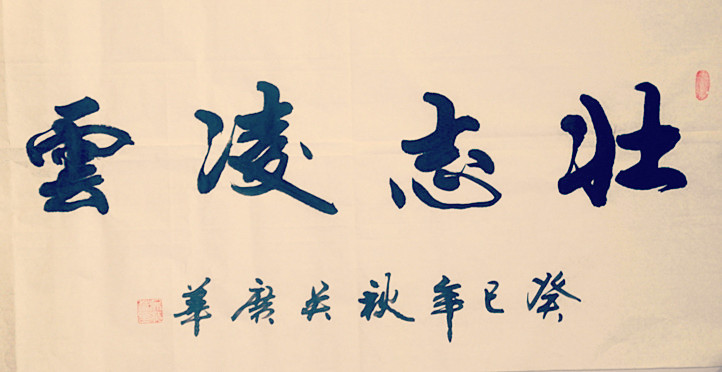 壯志凌雲
癸巳年秋吳廣華